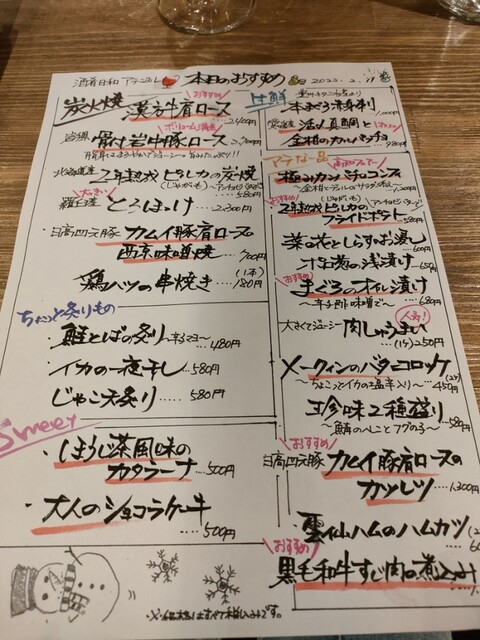 酒肴日和 アテニヨル 本日のおすすめ 2023.2.
炭火焼
おすすめ
漢方牛肩ロース
2,400円
ボリューム満点
骨付岩中豚ロース
2,700円
北海道産 2年熟成ピルカの炭焼
(じゃがいも)
580円
大っきい
羅臼産 とろほっけ
2,300円
日高四元豚 カムイ豚肩ロースの
西京味噌焼 900円
鶏ハツの串焼き (1本) 180円
ちょっと炙りもの
・鮭とばの炙り 480円
・イカの一夜干し 580円
・じゃこ天炙り 580円
Sweet
・ほうじ茶風味の
カタラーナ 500円
・大人のショコラケーキ
500円
鮮
本まぐろ赤身刺
1,000円
活〆真鯛と
金柑のカルパッチョ
980円
アテな一品
極みカンパチのコンフィ
おすすめ
2年熟成ピルカの
フライドポテト
580円
菜の花としらすのお浸し
600円
浅漬け
おすすめ
まぐろのオイル漬け
680円
人気!
大きくてジューシー 肉しゅうまい
(1ケ) 250円
メークインのバターコロッケ
〜ちょこっとイカの塩辛入り〜 450円
珍味2種盛り
〜鯖のへしことフグの子〜 580円
おすすめ
日高四元豚 カムイ豚肩ロースの
カツレツ 1,300円
雲仙ハムのハムカツ
おすすめ
黒毛和牛すじ肉の煮込み
※価格はすべて税込みです。